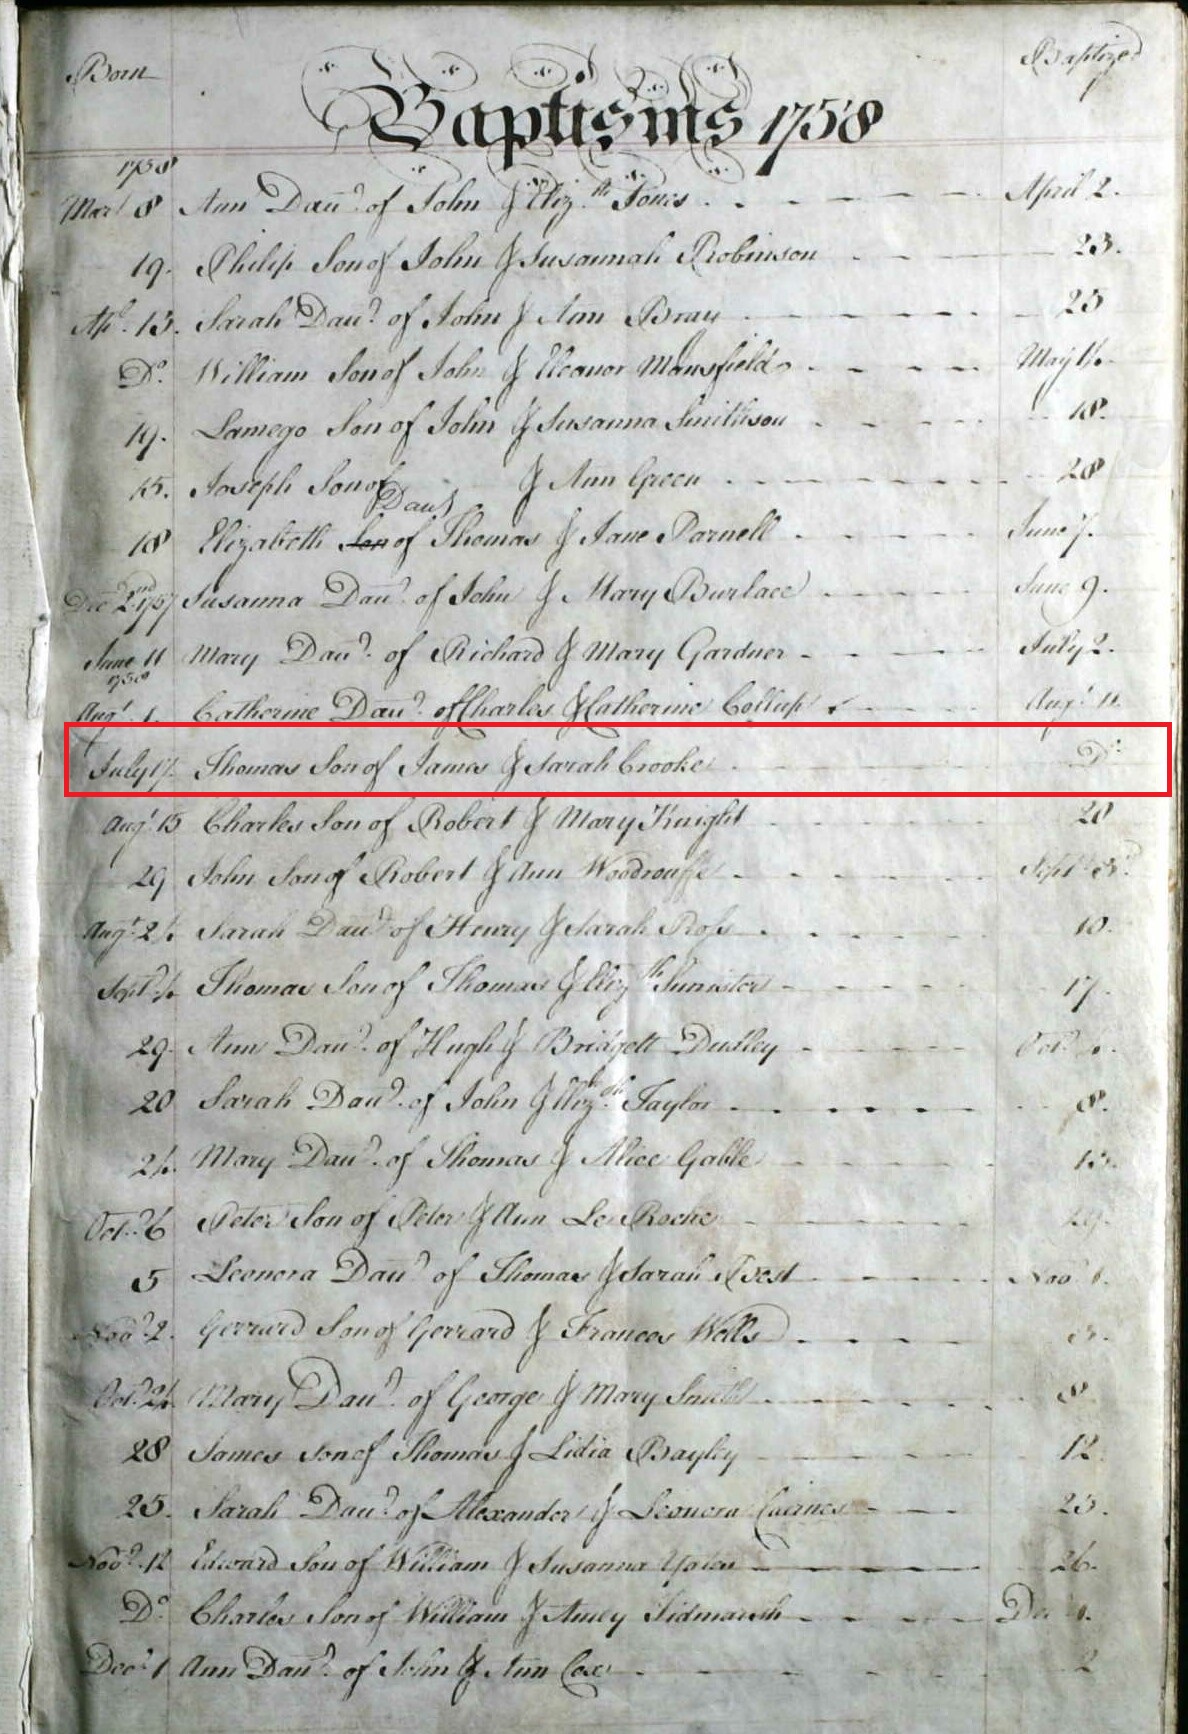 Born Baptized
Baptisms 1758
1758
Mar! 8 Ann Dau.r of John & Eliz.th Jones April 2.
19. Philip Son of John & Susannah Robinson 23.
Ap.l 13. Sarah Dau.r of John & Ann Bray 23
D.o William Son of John & Eleanor Mansfield May 14.
19. Lamego Son of John & Susanna Smithson 18.
15. Joseph Son of & Ann Green 28
Dau.r
18 Elizabeth Son of Thomas & Jane Parnell June 7.
Dec.r 2.nd 1757 Susanna Dau.r of John & Mary Burlace June 9.
June 11 Mary Dau.r of Richard & Mary Gardner July 2.
1758
Aug.t 1. Catherine Dau.r of Charles & Catherine Collup Aug.t 11.
July 17. Thomas Son of James & Sarah Crooke D.o
Aug.t 15 Charles Son of Robert & Mary Knight 20
29 John Son of Robert & Ann Woodrouffe Sept.r 3.d
Aug.t 24. Sarah Dau.r of Henry & Sarah Ross 10.
Sept.r 4. Thomas Son of Thomas & Eliz.th 17.
29. Ann Dau.r of Hugh & Bridgett Dudley Oct.r
20 Sarah Dau.r of John & Eliz.th Taylor 8.
24. Mary Dau.r of Thomas & Alice Gable 15.
Oct.r 6 Peter Son of Peter & Ann Le Roche 29.
5 Leonora Dau.r of Thomas & Sarah West Nov.r 1.
Nov.r 2. Gerrard Son of Gerrard & Frances Wells 5.
Oct.r 24. Mary Dau.r of George & Mary Smith 8.
28 James Son of Thomas & Lidia Bayley 12.
25. Sarah Dau.r of Alexander & Leonora Cairnes 23.
Nov.r 12 Edward Son of William & Susanna Yates 26.
D.o Charles Son of William & Amey Tidmarsh Dec.r 1.
Dec.r 1 Ann Dau.r of John & Ann Cox 2